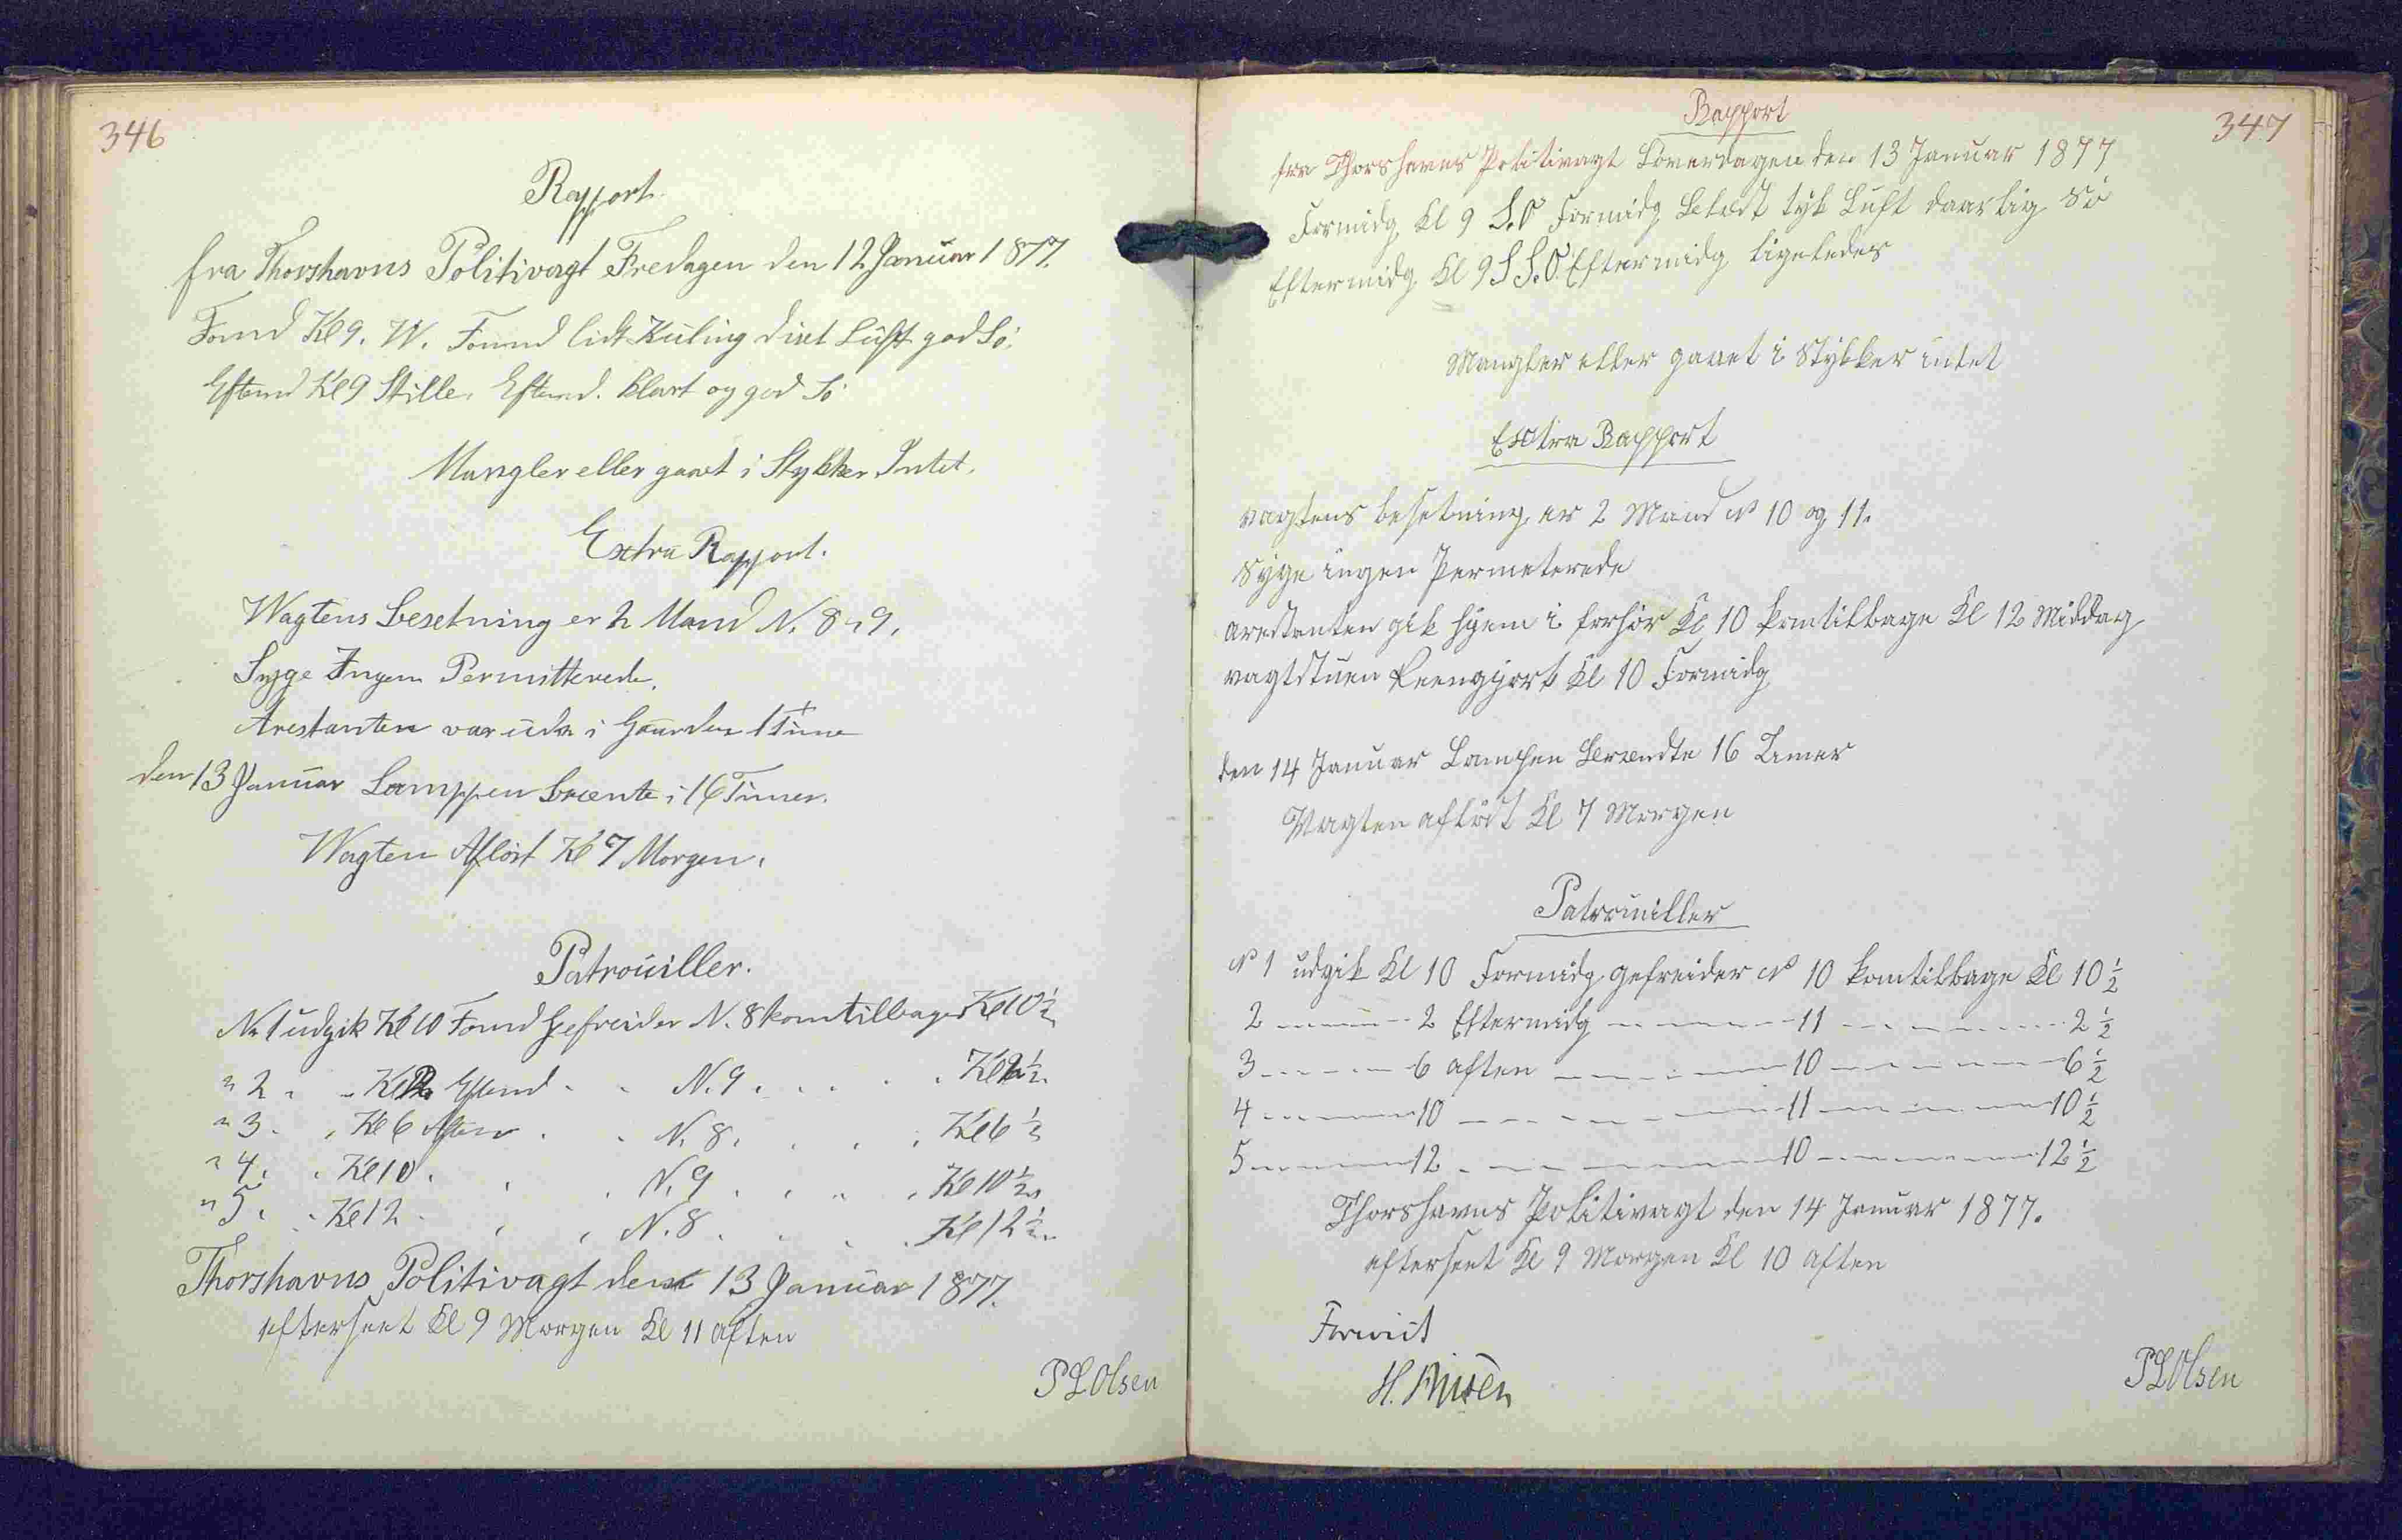 346
Rapport.
fra Thorshavns Politivagt Fredagen den 12 Januar 1877.
Formd Kl 9. W. Formd lidt Kuling diset Luft god Sö.
Eftemd Kl 9 Stille. Eftemd. Klart og god Sö
Mangler eller gaaet i Stykker Intet.
Extra Rapport.
Wagtens Besetning er 2 Mand N. 8 o 9.
Syge Ingen Permitterede.
Arestanten var ude i Gaarden 1 Time
den 13 Januar Lamppen brænte i 16 Timer.
Wagten Aflöst Kl 7 Morgen.
Patrouiller.
Nr 1 udgik Kl 10 Formd Gefreider N. 8 kom tilbage Kl 10 ½
" 2 " " Kl 2 Eftemd " " N. 9 . . . . . Kl 2 ½
" 3 . , Kl 6 Aften . . N. 8 . . . . Kl 6 ½
" 4 . . Kl 10 . . . N. 9 . . . . Kl 10 ½
" 5 . . Kl 12 . . . N. 8 . . . . Kl 12 ½
Thorshavns Politivagt den 13 Januar 1877.
efterseet Kl 9 Morgen Kl 11 Aften
P L Olsen
347
Rapport
fra Thorshavns Politivagt Löverdagen den 13 Januar 1877
Formidg Kl 9 S.O Formidg Beledt tyk Luft daarlig Sö
Eftermidg Kl 9 S S.O. Eftermidg ligeledes
Mangler eller gaaet i Stykker intet
Extra Rapport
vagtens besetning er 2 Mand No 10 og 11.
Syge ingen Permeterede
arestanten gik hjem i forhör Kl 10 kom tilbage Kl 12 Middag
vagtstuen Reengjort Kl 10 Formidg
den 14 Januar Lampen Berændte 16 Timer
Vagten aflöst Kl 7 Morgen
Patrouiller
No 1 udgik Kl 10 Formidg gefreider No 10 kom tilbage Kl 10 ½
2 ------ 2 Eftermidg ------ 11 ------ 2 ½
3 ------ 6 aften ------ 10 ------ 6 ½
4 ------ 10 ------ 11 ------ 10 ½
5 ------ 12 ------ 10 ------ 12 ½
Thorshavns Politivagt den 14 Januar 1877.
efterseet Kl 9 Morgen Kl 10 aften
Forevist
H.
P L Olsen